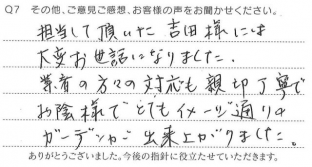 Q7 その他、ご意見ご感想、お客様の声をお聞かせください。
担当して頂いた 吉田様には
大変お世話になりました。
業者の方々の対応も親切丁寧で
お陰様でとてもイメージ通りの
ガーデンが出来上がりました。
ありがとうございました。今後の指針に役立たせていただきます。